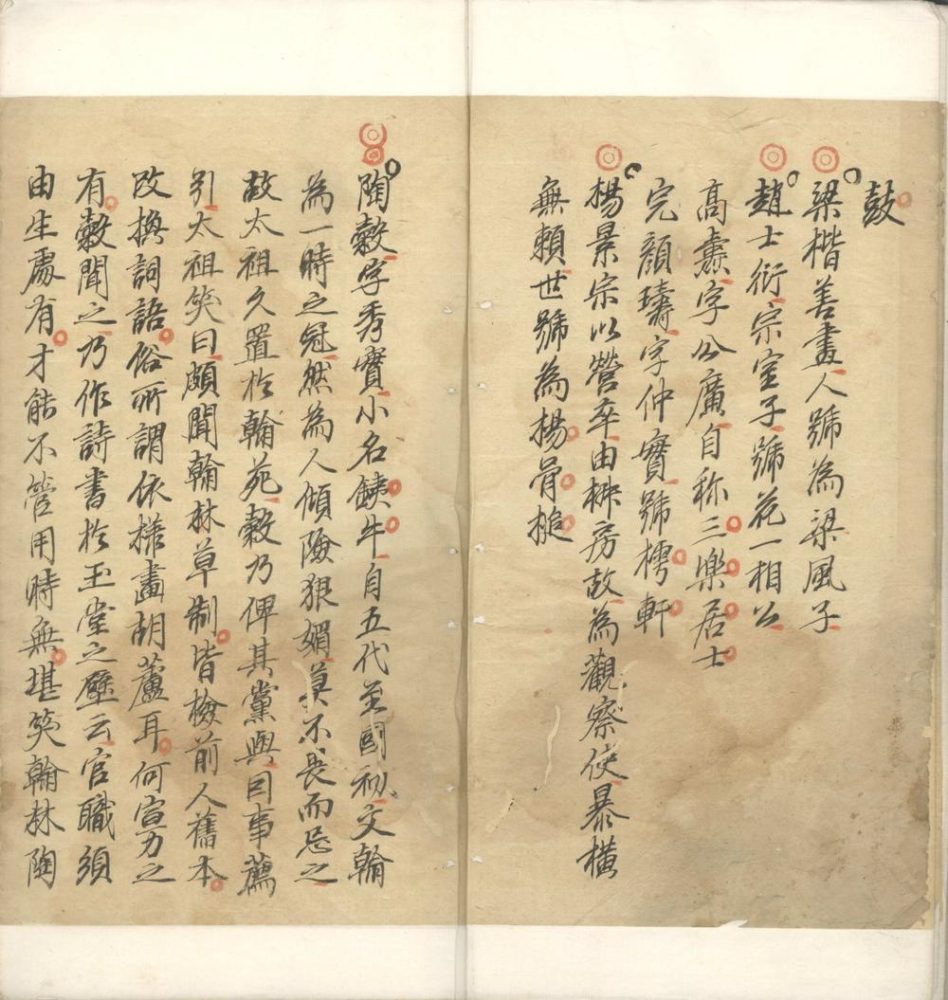 鼓
梁楷善畫人號為梁風子
趙士衍宗室子號花一相公
高燾字公廣自称三樂居士
完顏璹字仲實號樗軒
楊景宗以營卒由椒房故為觀察使暴橫
無賴世號為楊骨槌
陶穀字秀實小名鐵牛自五代至國初文翰
為一時之冠然為人傾險狠媚莫不畏而忌之
故太祖久置於翰苑穀乃俾其黨與因事薦
引太祖笑曰頗聞翰林草制皆檢前人舊本
改換詞語俗所謂依樣畫胡蘆耳何宣力之
有穀聞之乃作詩書於玉堂之壁云官職須
由生處有才能不管用時無堪笑翰林陶